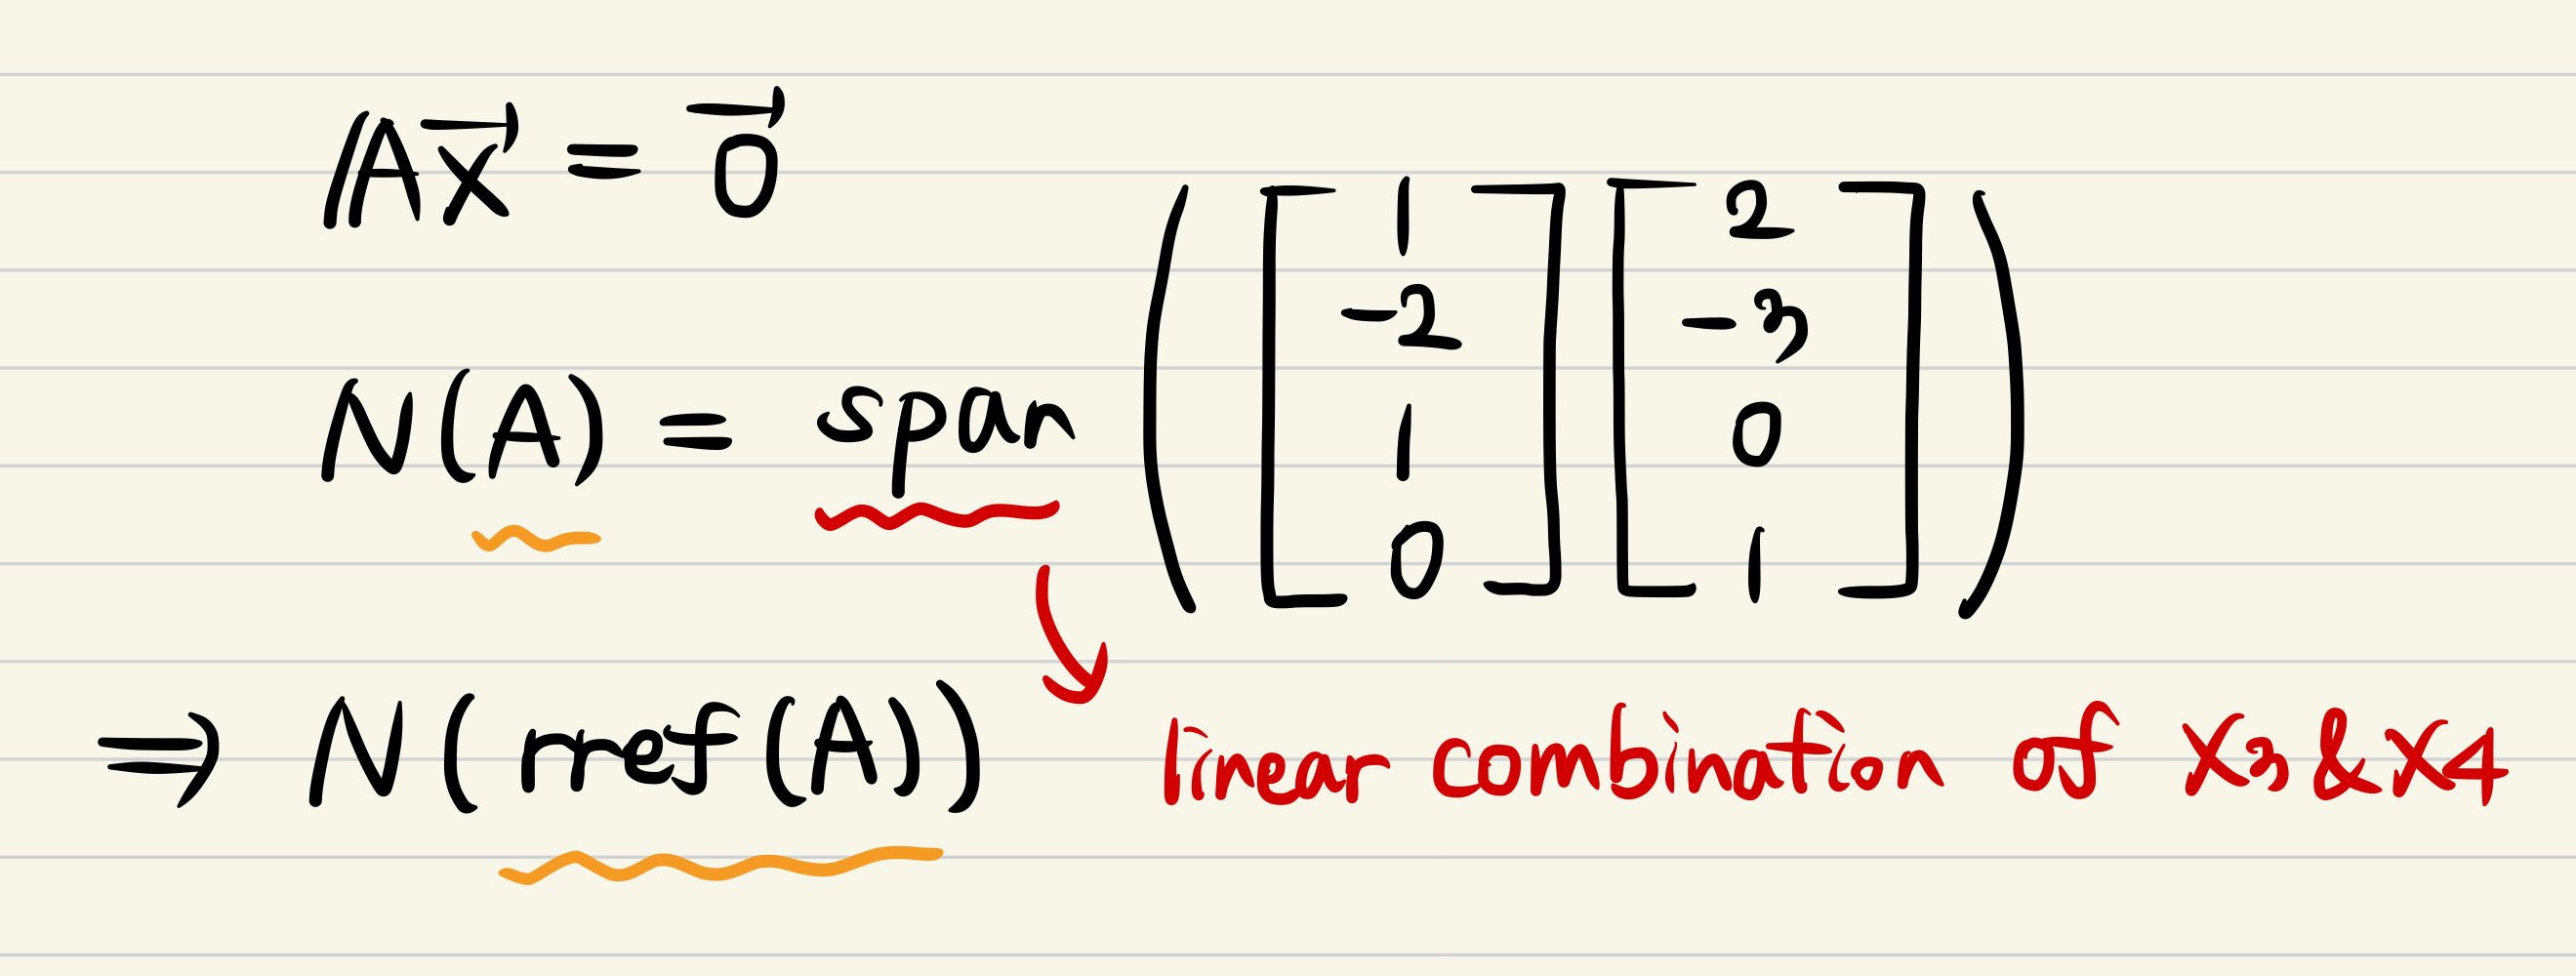 Ax⃗ = 0⃗
N(A) = span ( [ 1 -2 1 0 ] [ 2 -3 0 1 ] )
⇒ N(rref(A))
linear combination of x3 & x4